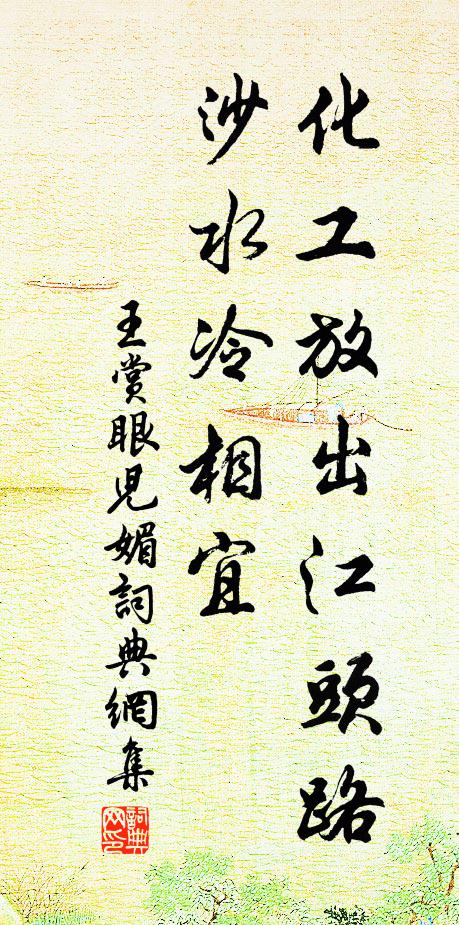 化工放出江頭路
沙水冷相宜
王賞眼兒媚詞典網集
詞典網印